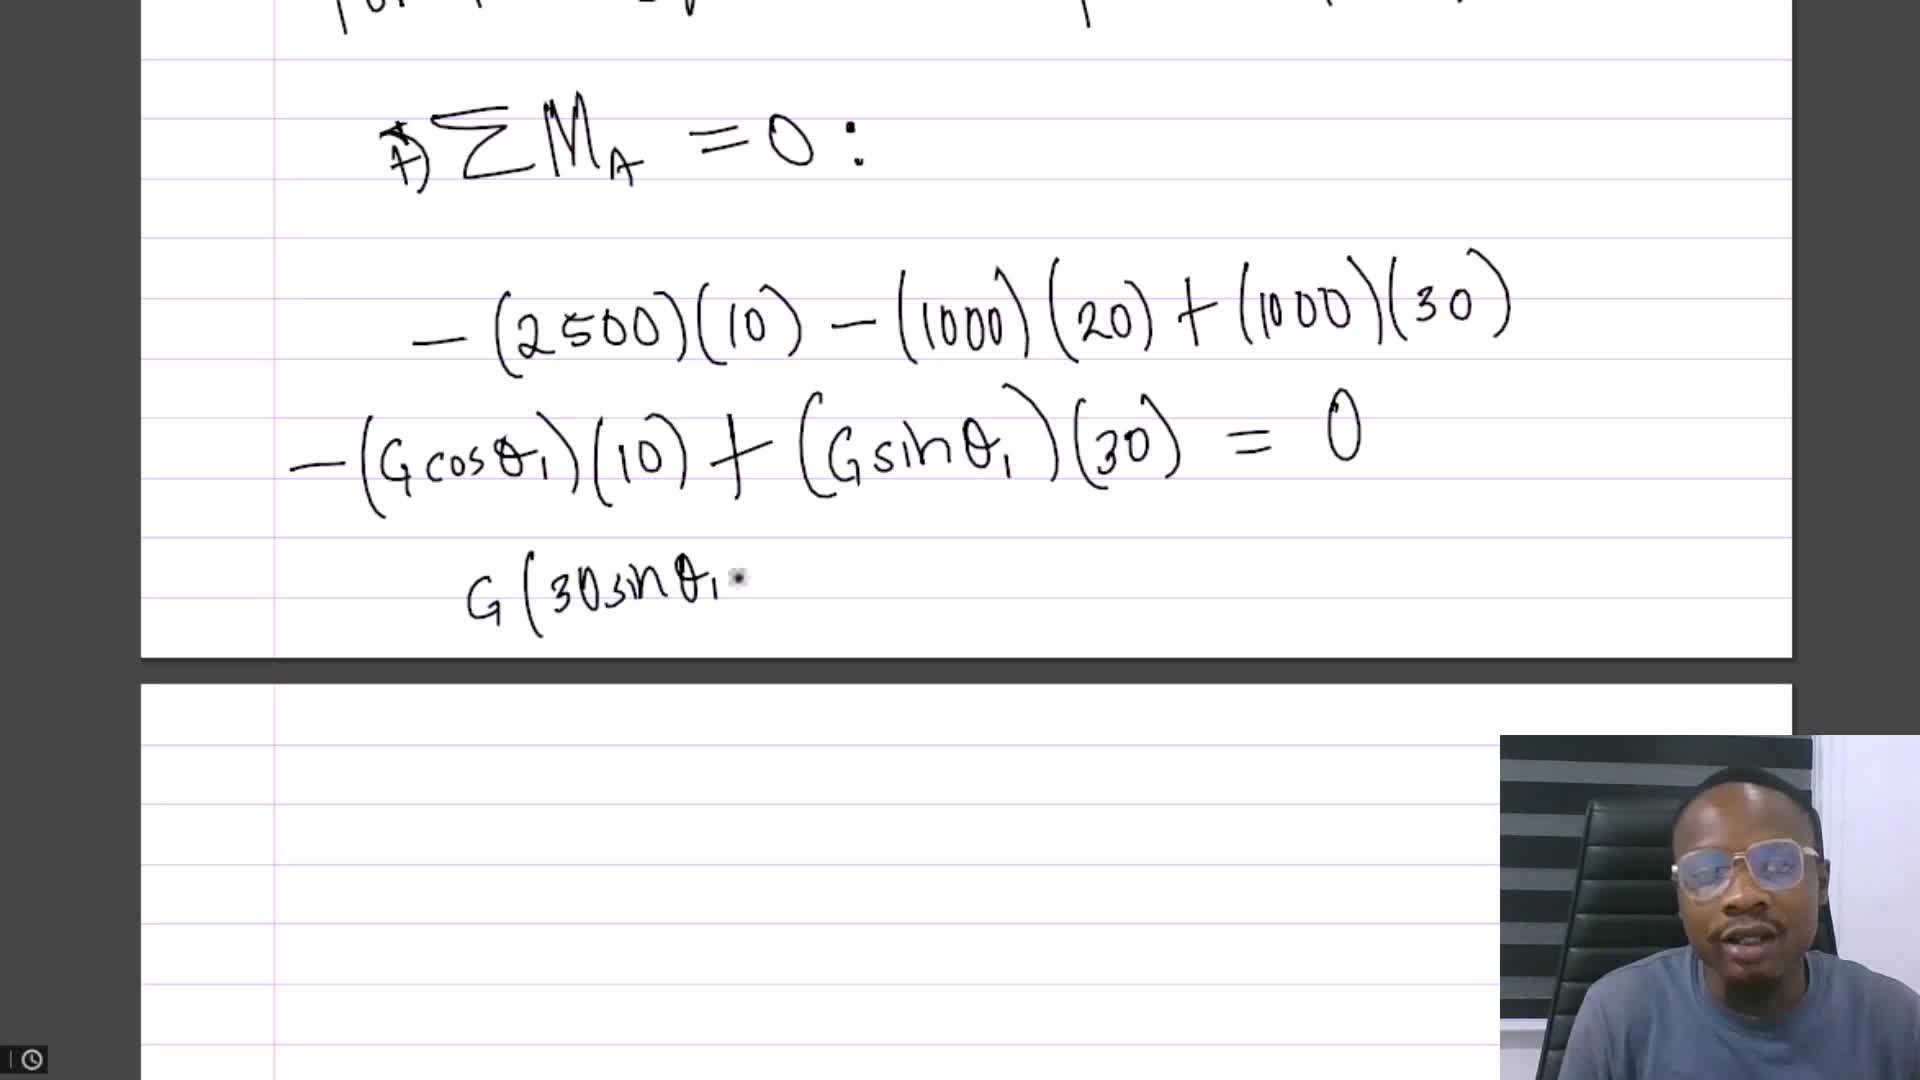 +) ∑ M_A = 0 :
− (2500)(10) − (1000)(20) + (1000)(30)
− (G cos θ₁)(10) + (G sin θ₁)(30) = 0
G (30 sin θ₁